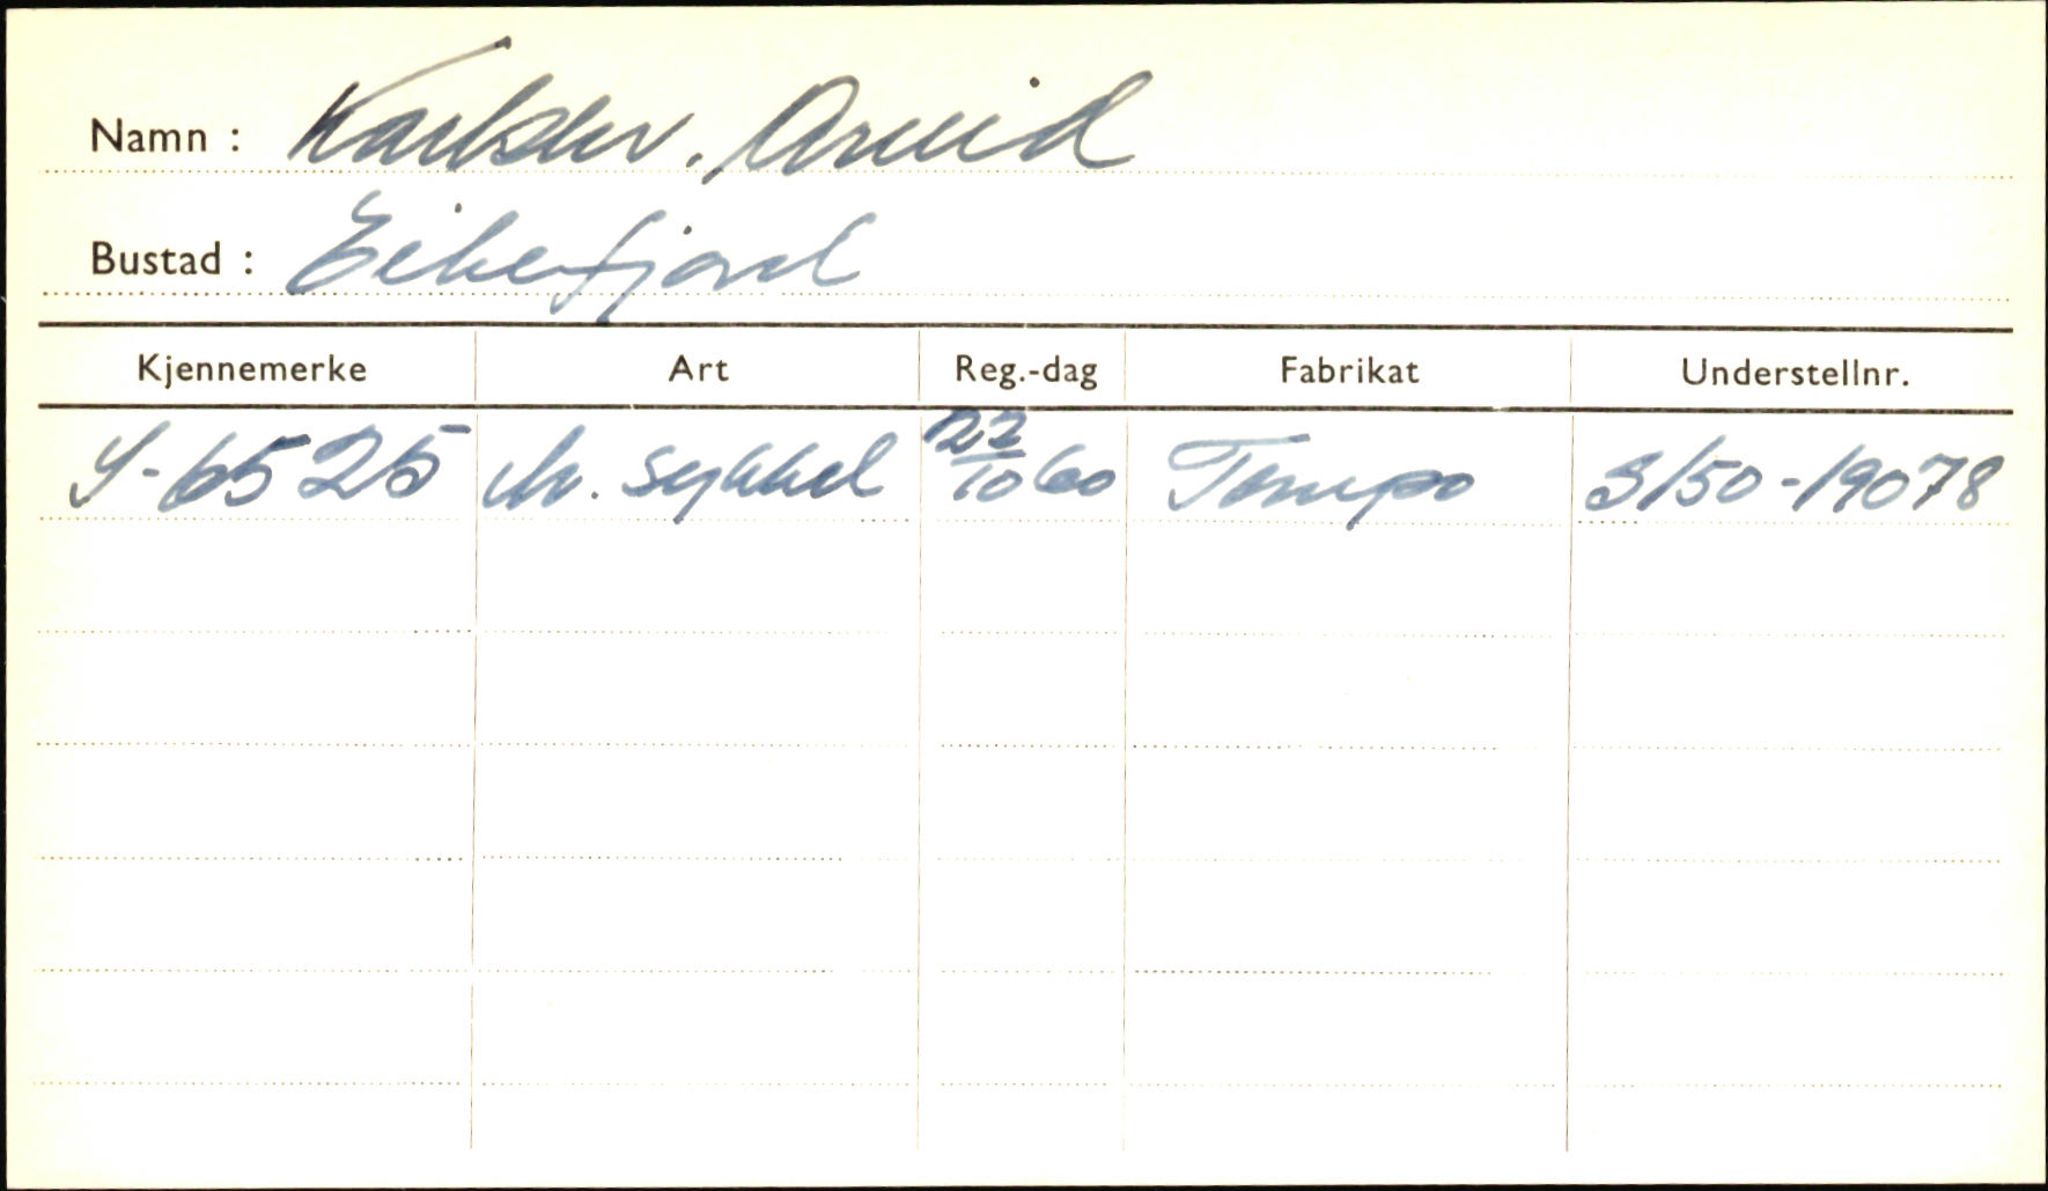 Namn : Arvid
Bustad : Eikefjord
Kjennemerke Art Reg.-dag Fabrikat Understellnr.
S-6525 M. sykkel 22/10 60 Tempo S/50-19078